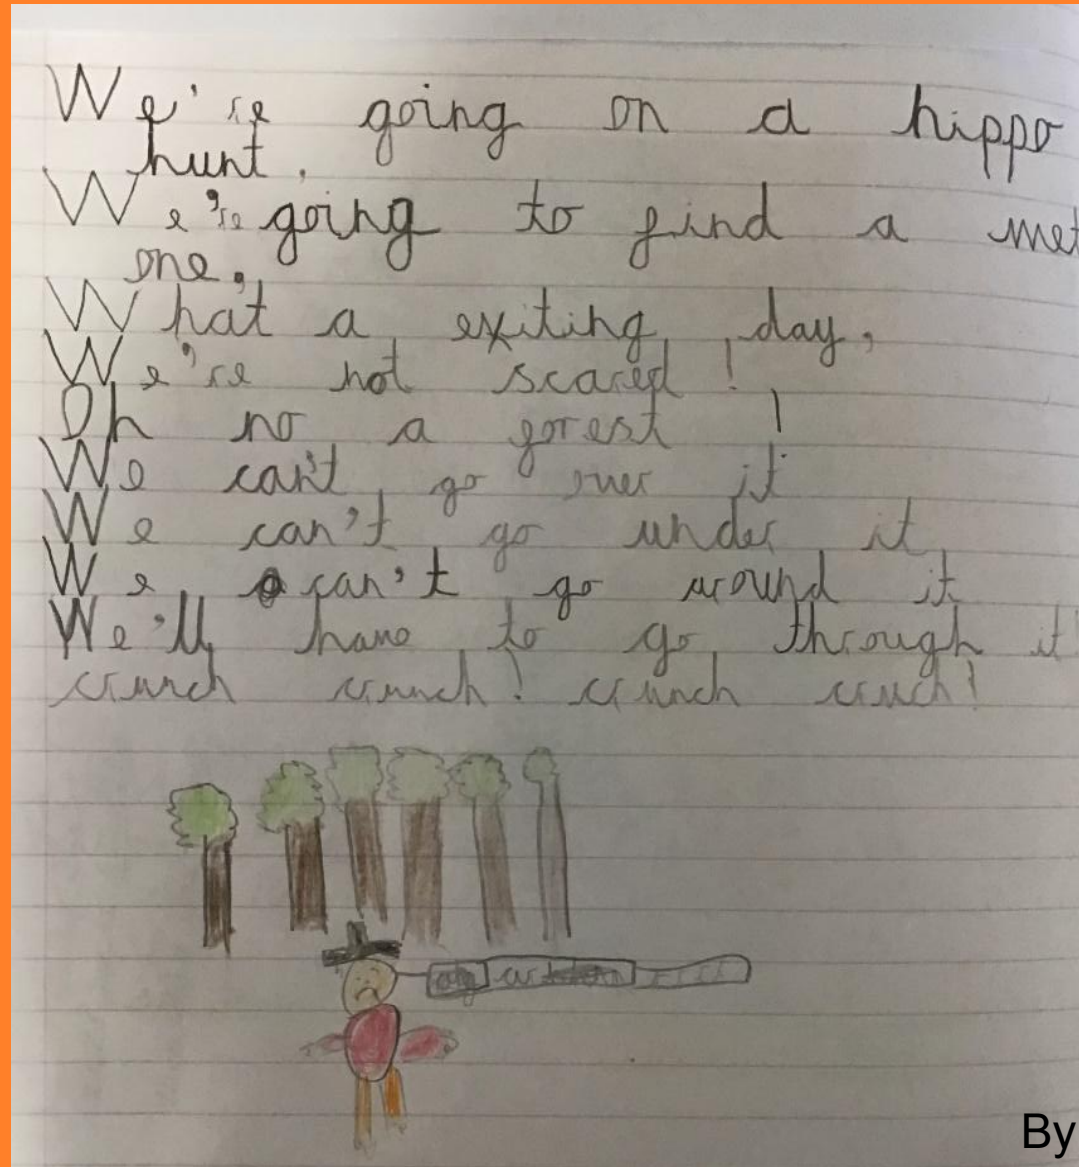 We're going on a hippo
hunt.
We're going to find a
one.
What a exiting day,
We're not scared!
Oh no a forest!
We can't go over it
We can't go under it
We can't go around it
We'll have to go through it
crunch crunch! crunch cruch!
By